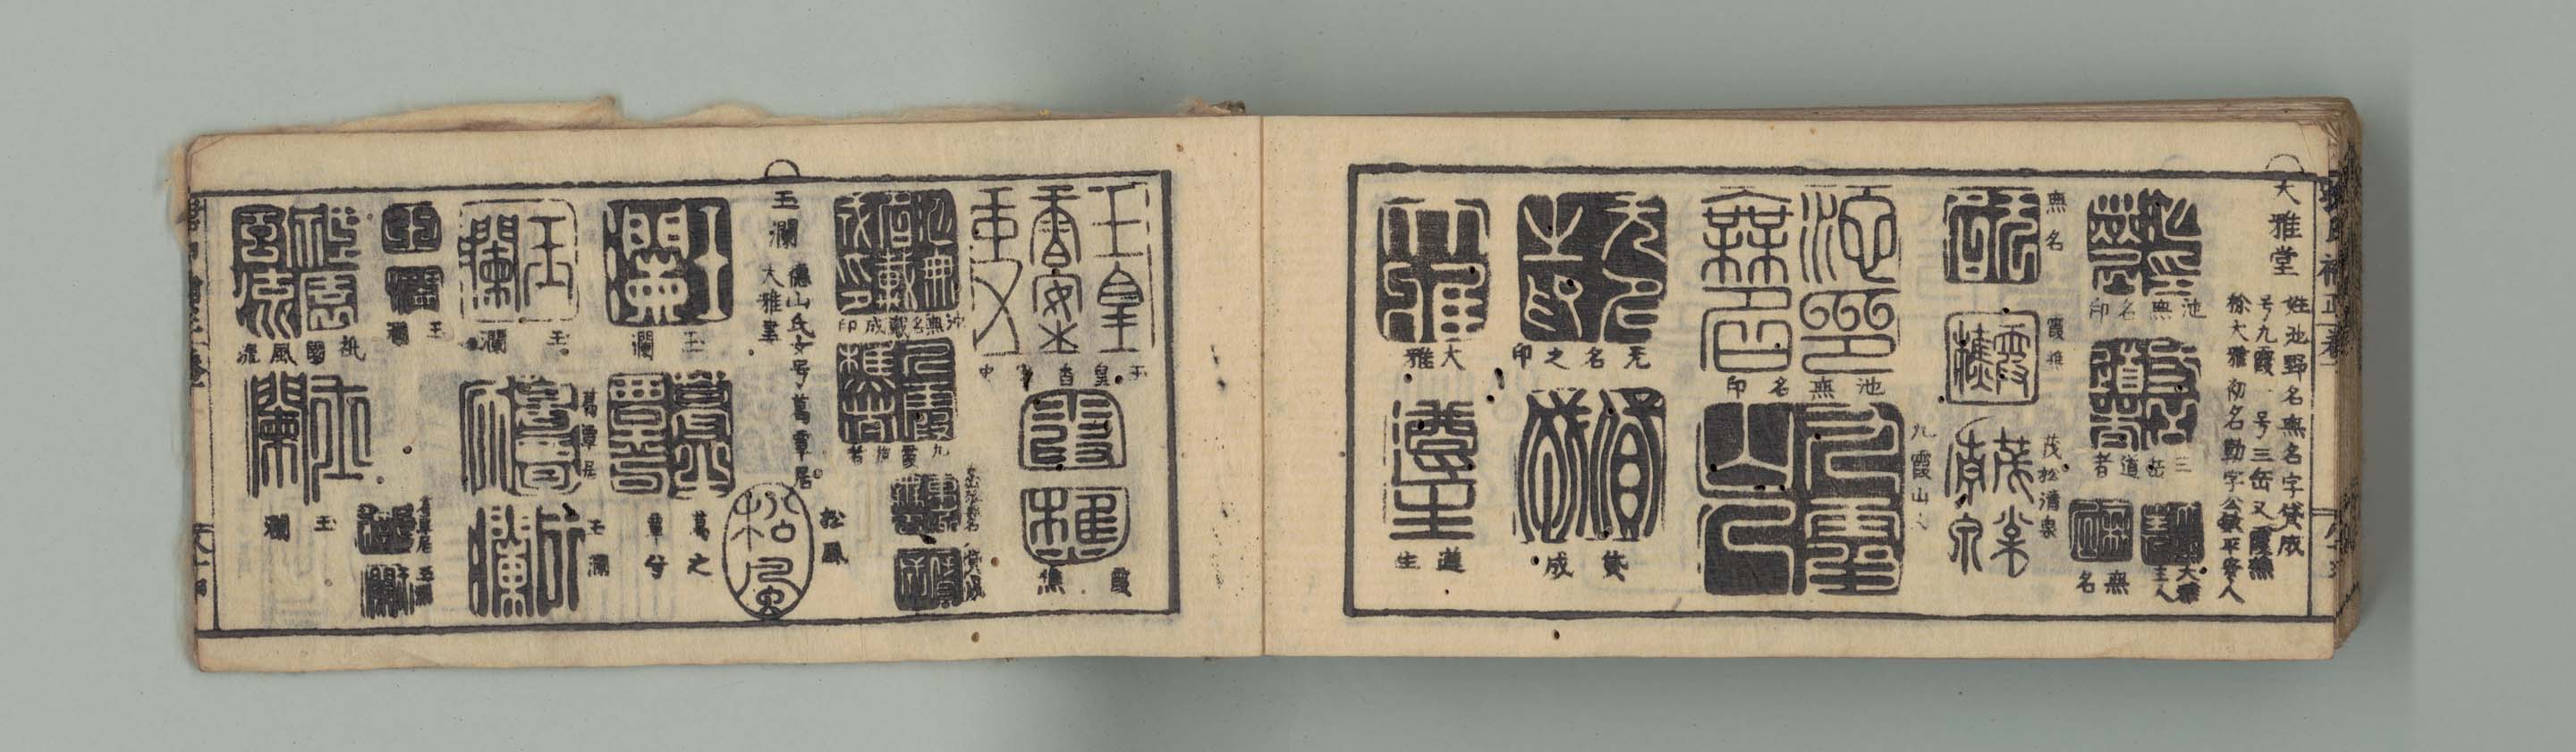 大雅堂
姓池野名無名字貸成
号九霞一号三岳又霞樵
徐大雅初名勤字公敏平安人
池無名印
三岳道者
大雅主人
無名
無名
霞樵
茂松清泉
池無名印
九霞山人
无名之印
貸成
大雅
遵生
玉皇香案吏
霞樵
池無名貸成印
九霞樵者
貸成
松風
玉瀾
徳山氏女号葛覃居
大雅妻
玉瀾
葛之覃兮
玉瀾
葛覃居
玉瀾
玉瀾
玉瀾
祇園風流
玉瀾